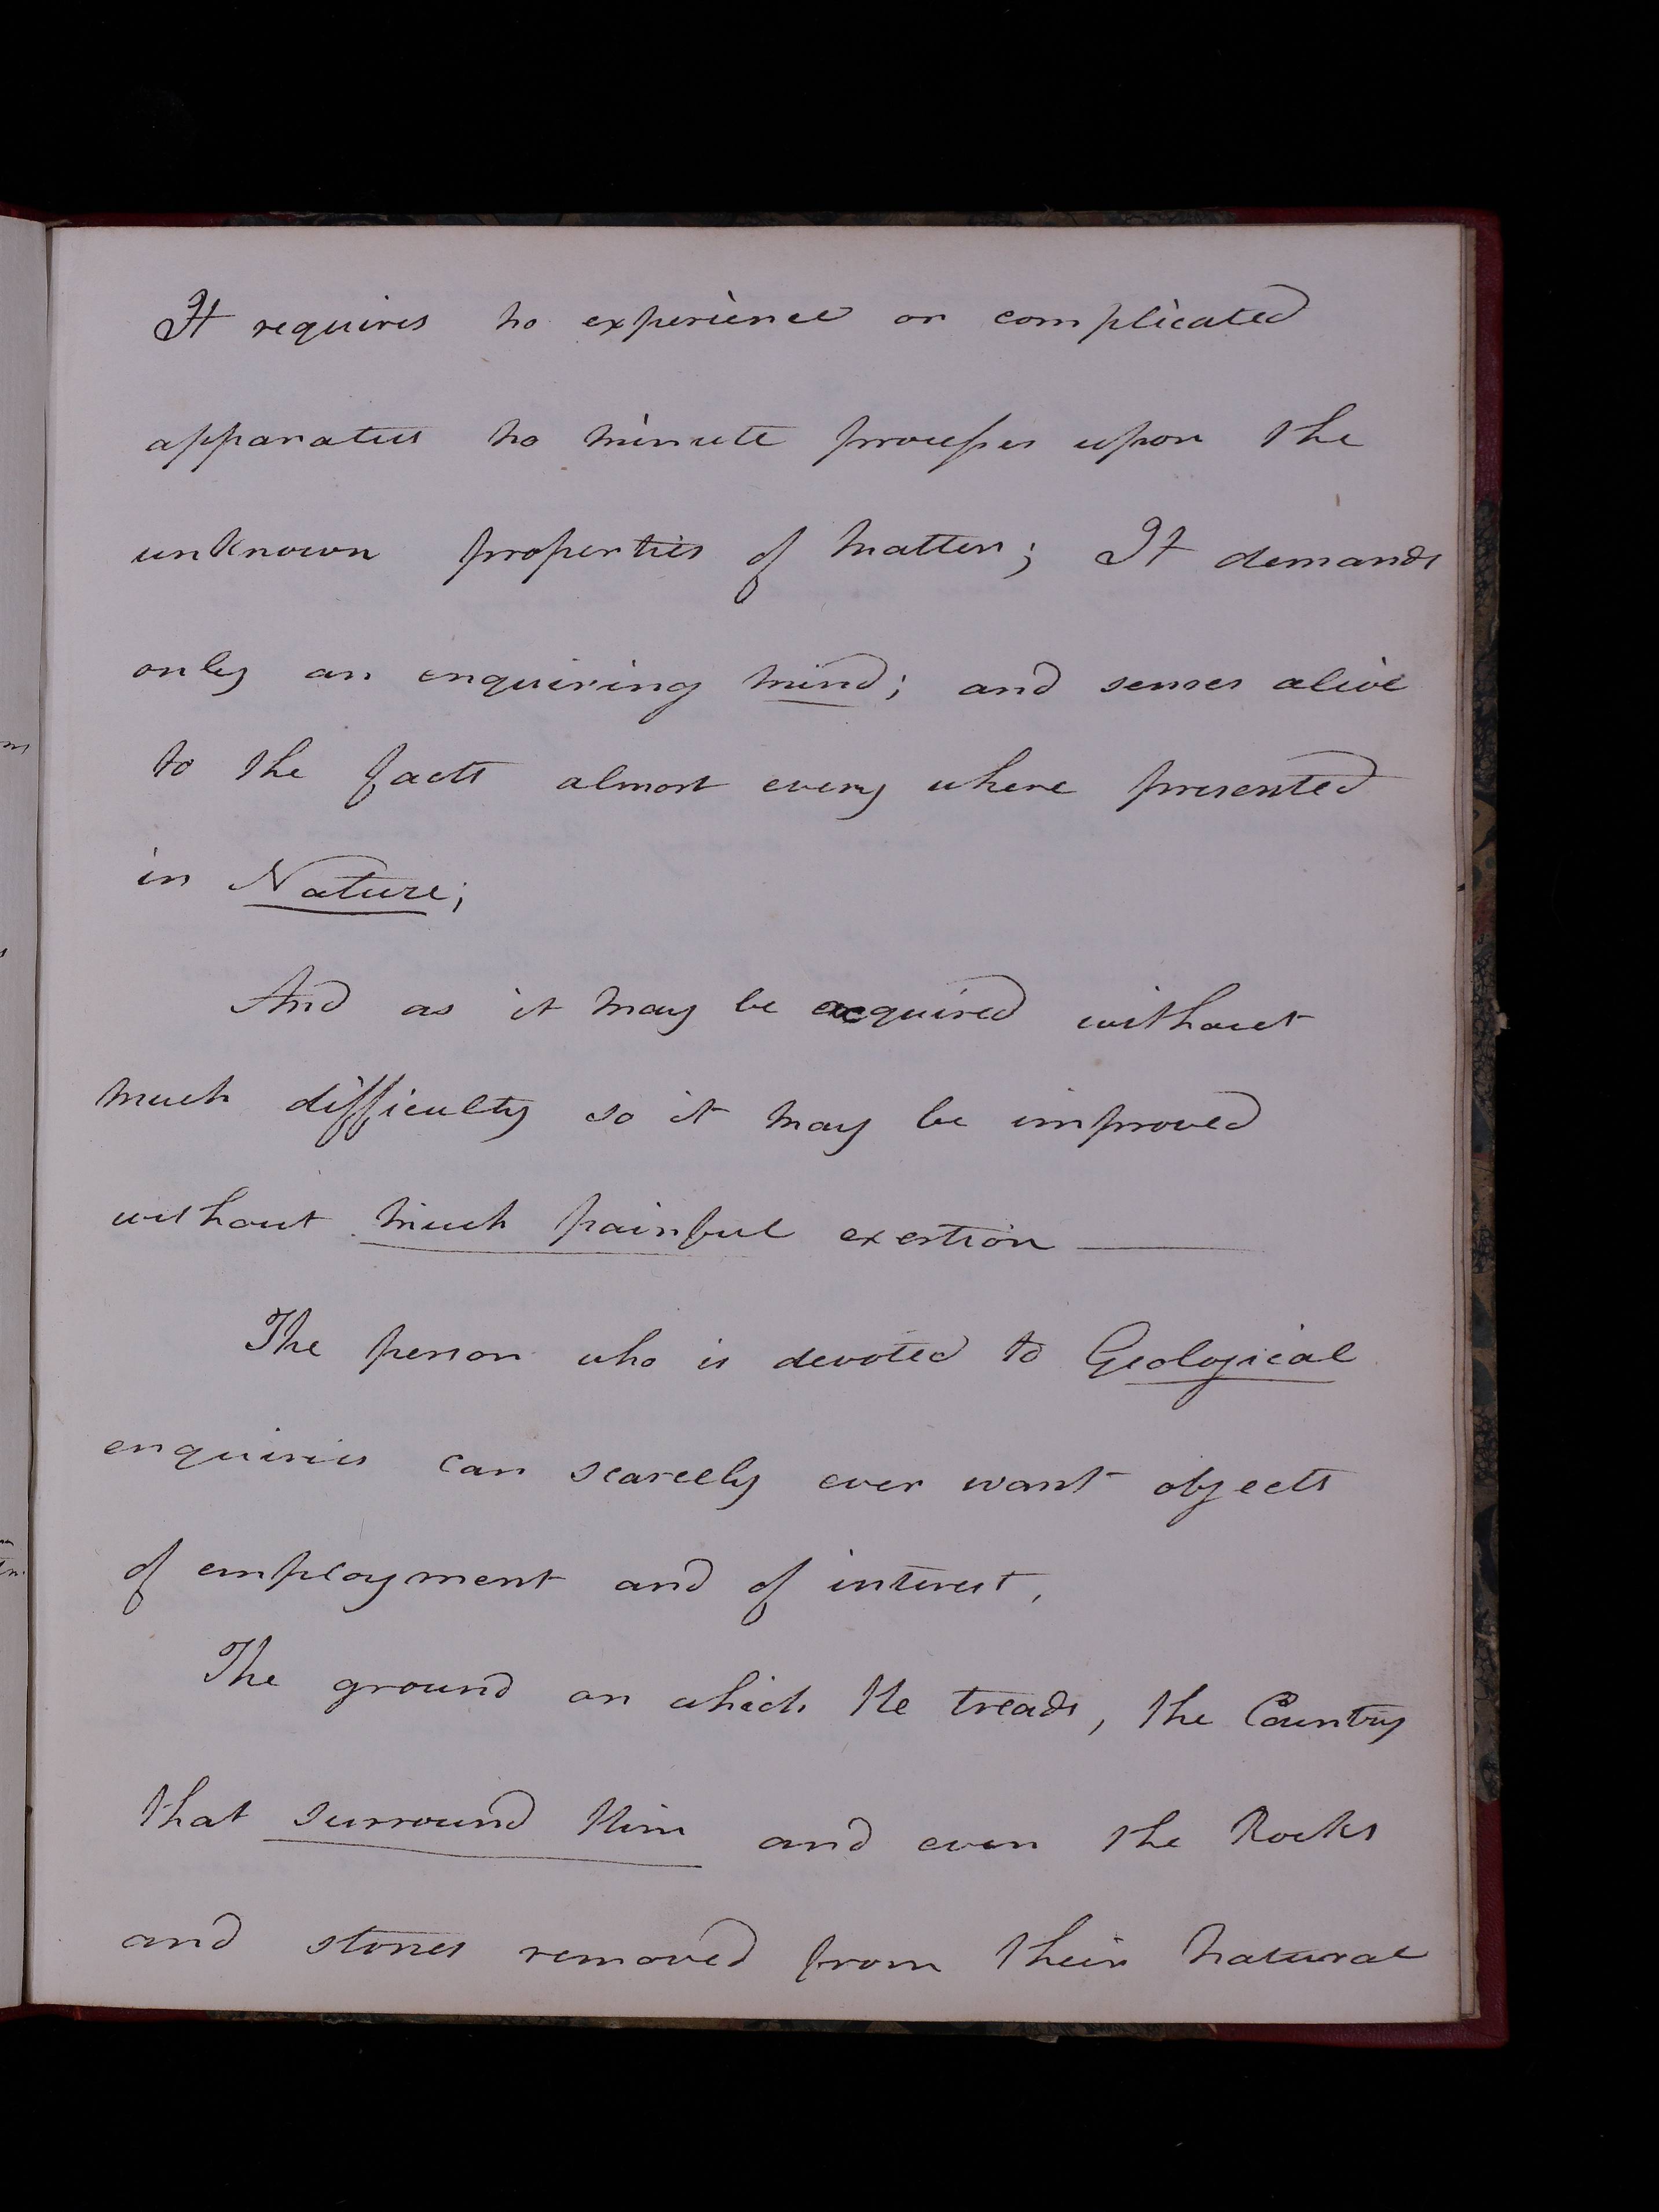 It requires no experience or complicated
apparatus no minute processes upon the
unknown properties of matter; It demands
only an enquiring mind; and senses alive
to the facts almost every where presented
in Nature;
And as it may be acquired without
much difficulty so it may be improved
without much painful exertion ———
The person who is devoted to Geological
enquiries can scarcely ever want objects
of employment and of interest,
The ground on which He treads, the Country
that surround Him and even the Rocks
and stones removed from their natural